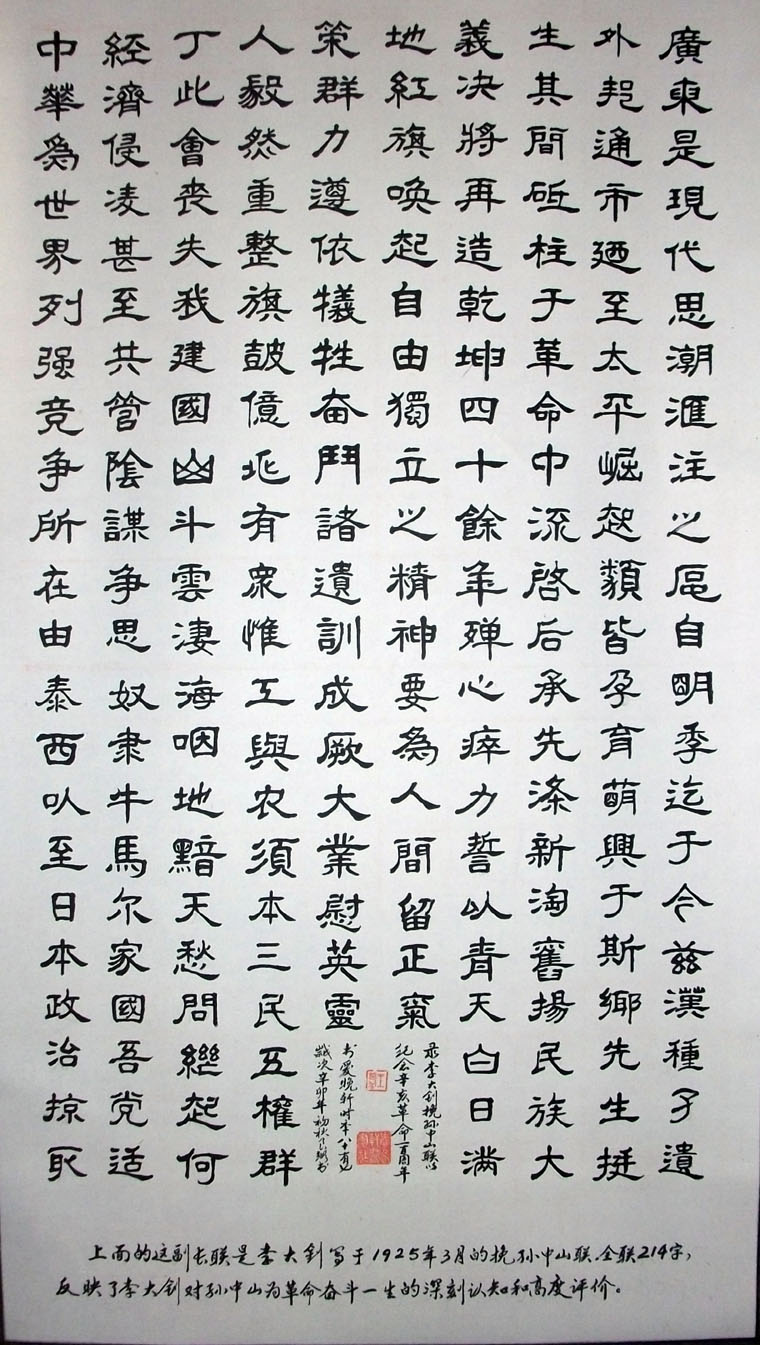 廣東是現代思潮滙注之區自明季迄于今兹漢種孑遺
外邦通市廼至太平崛起類皆孕育萌興于斯鄉先生挺
生其間砥柱于革命中流啓后承先滌新淘舊揚民族大
義决將再造乾坤四十餘年殫心瘁力誓以青天白日滿
地紅旗喚起自由獨立之精神要為人間留正氣
中華爲世界列强竞争所在由泰西以至日本政治掠取
經濟侵凌甚至共管陰謀争思奴隶牛馬尔家國吾党适
丁此會喪失我建國山斗雲淒海咽地黯天愁問繼起何
人毅然重整旗鼓億兆有衆惟工與农須本三民五權群
策群力遵依犧牲奋鬥諸遺訓成厥大業慰英靈
录李大钊挽孙中山联以
纪念辛亥革命一百周年
岁次辛卯年初秋
上面的这副长联是李大钊写于1925年3月的挽孙中山联.全联214字,
反映了李大钊对孙中山为革命奋斗一生的深刻认知和高度评价。